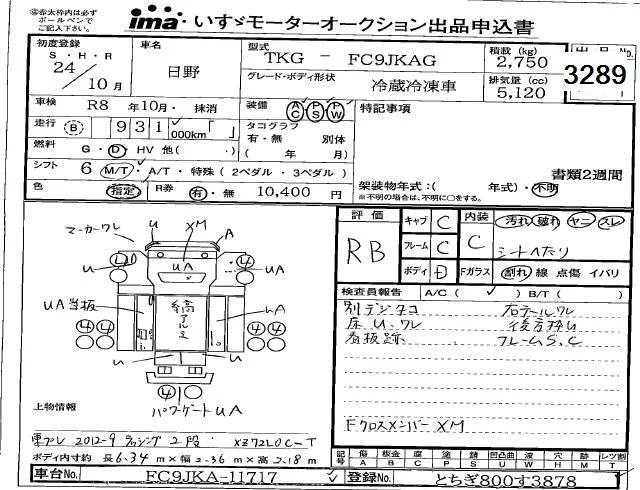 ※赤太枠内は必ず
ボールペンで
ご記入下さい。
ima いすゞモーターオークション出品申込書
初度登録 S・H・R 24/10月
車名 日野
型式 TKG - FC9JKAG
グレード・ボディ形状 冷蔵冷凍車
積載 (kg) 2,750
排気量 (cc) 5,120
3289
車検 R8 年 10月・ 抹消
装備 AC PS PW
特記事項
走行 B 931 000km「 」
タコグラフ 有・無 別体
( 年 月)
燃料 G・D HV 他( )
シフト 6 M/T・A/T・特殊 (2ペダル・3ペダル)
書類2週間
架装物年式:( 年式)・不明
※不明の場合は、不明に○をする。
色 指定 R券 有・無 10,400 円
マーカーワレ u XM A
④ u UA ④ UA
UA当板 縞アルミ uA
④④ ④④
u u
④
パワーゲートUA
評価 RB
キャブ C
フレーム C
ボディ D
内装 C 汚れ 破れ ヤニ スレ
シートヘたり
Fガラス 割れ 線 点傷 イバリ
検査員報告 A/C ( ✓ ) B/T ( )
別デジタコ 右テールワレ
床U、ワレ
看板跡 フレームS、C
FクロスメンバーXM
上物情報
東プレ 2012-9 2段 XZ72L0C-T
ボディ内寸約 長6.34 m×幅2.36 m×高2.18 m
記号 傷A 板金B 座C 塗P 錆S 凹U 凸 曲 波W 穴H 跡M 欠T レツ割
車台No. FC9JKA-11717
登録No. とちぎ800す3878